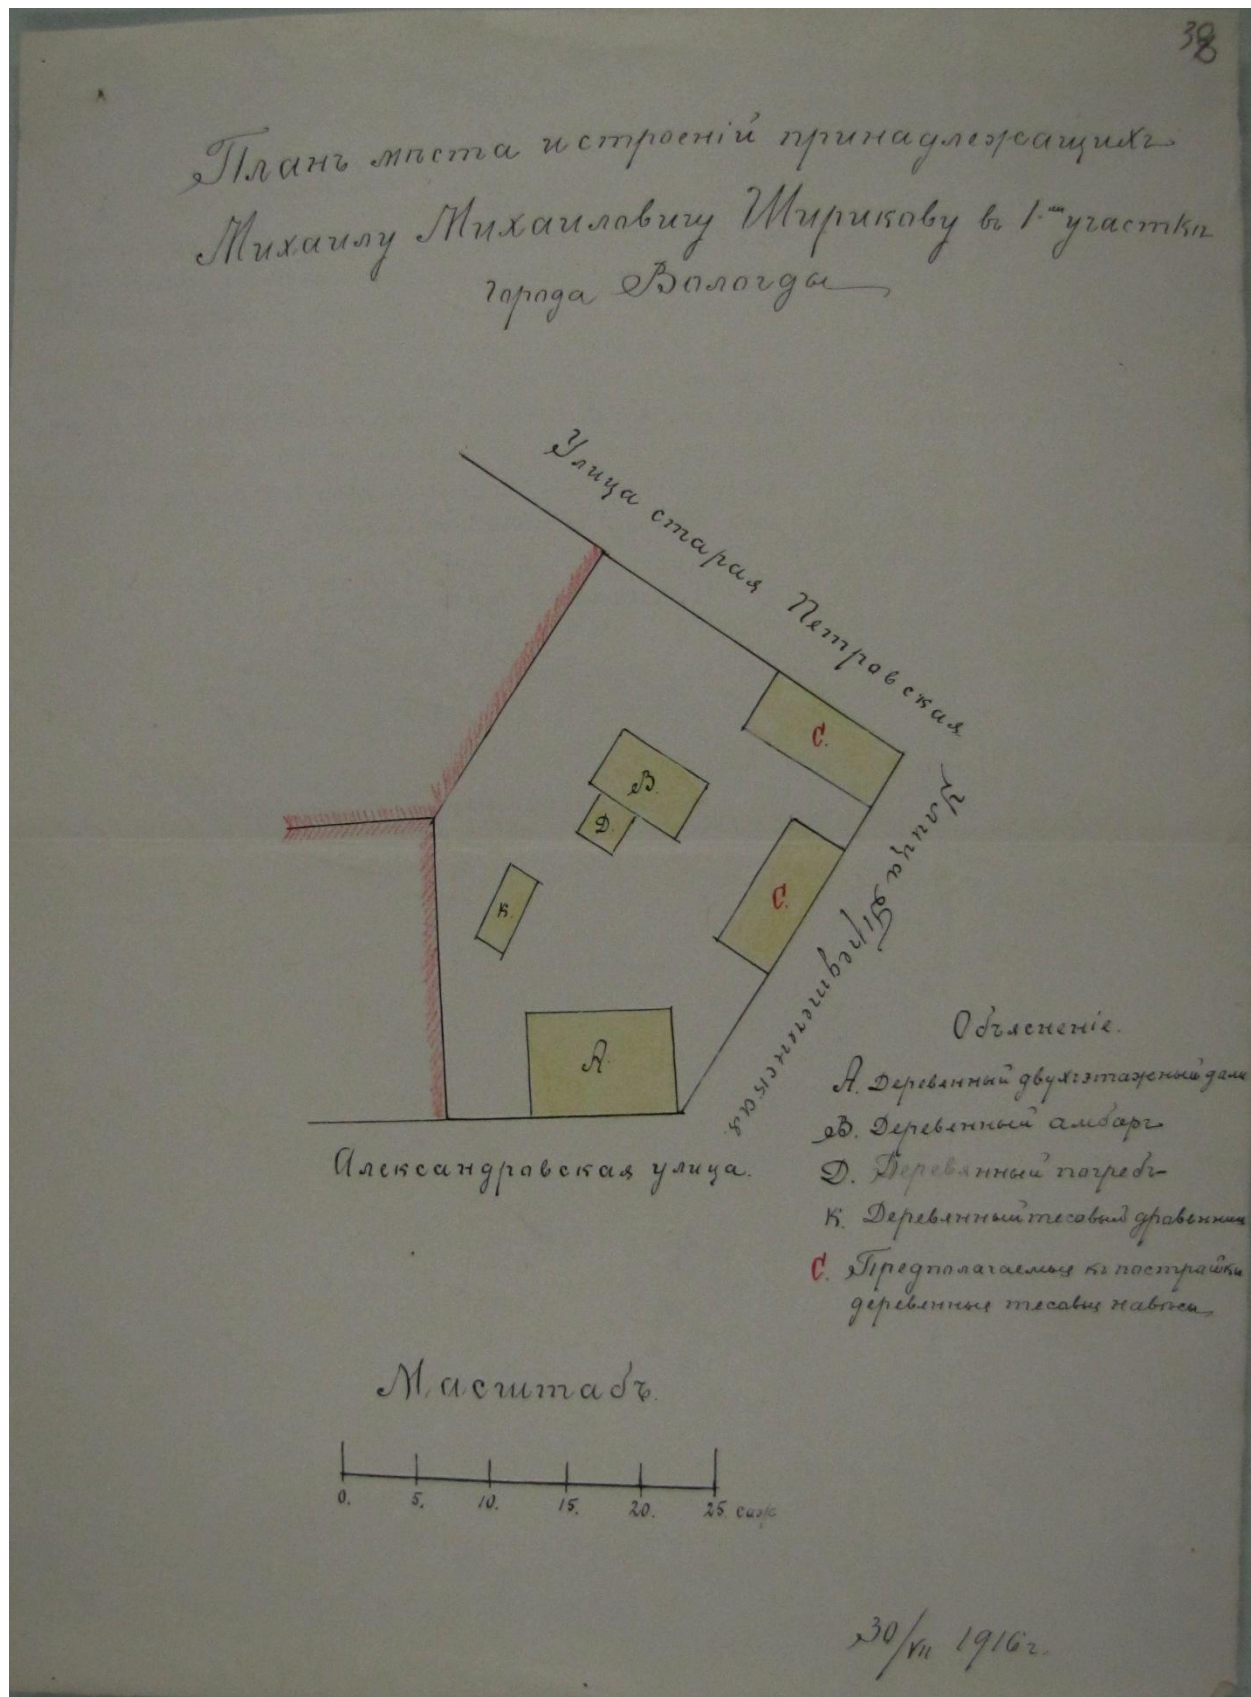 38
Планъ мѣста и строеній принадлежащихъ
Михаилу Михаиловичу Ширикову въ 1-мъ участкѣ
города Вологды
Улица старая Петровская
Улица Предтеченская
В.
С.
Д.
К.
С.
А.
Александровская улица.
Объясненіе.
А. Деревянный двухъэтажный домъ
В. Деревянный амбаръ
Д. Деревянный погребъ
К. Деревянный тесовый дровенник
С. Предполагаемые къ постройкѣ
деревянные тесовые навѣсы
Масштабъ.
0. 5. 10. 15. 20. 25 саж
30/VII 1916 г.